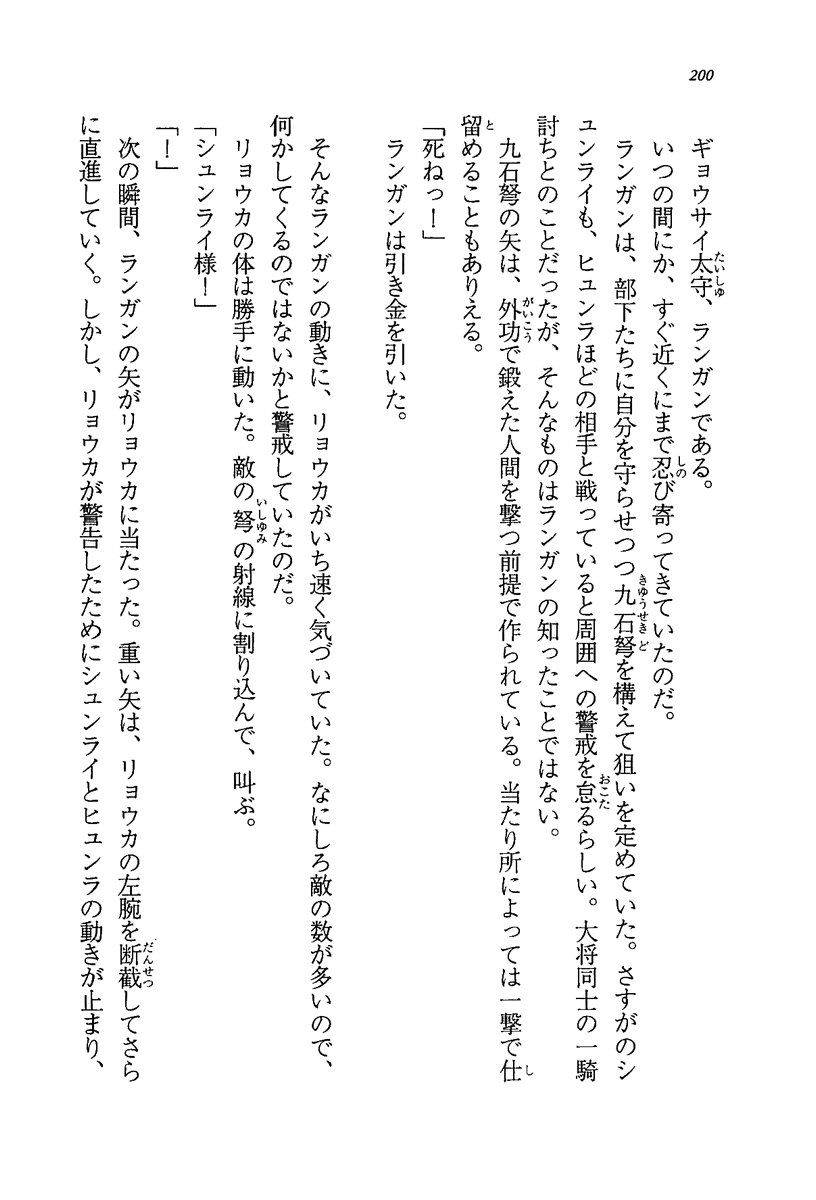 200
ギョウサイ太守、ランガンである。
いつの間にか、すぐ近くにまで忍び寄ってきていたのだ。
ランガンは、部下たちに自分を守らせつつ九石弩を構えて狙いを定めていた。さすがのシ
ュンライも、ヒュンラほどの相手と戦っていると周囲への警戒を怠るらしい。大将同士の一騎
討ちとのことだったが、そんなものはランガンの知ったことではない。
九石弩の矢は、外功で鍛えた人間を撃つ前提で作られている。当たり所によっては一撃で仕
留めることもありえる。
「死ねっ！」
ランガンは引き金を引いた。
そんなランガンの動きに、リョウカがいち速く気づいていた。なにしろ敵の数が多いので、
何かしてくるのではないかと警戒していたのだ。
リョウカの体は勝手に動いた。敵の弩の射線に割り込んで、叫ぶ。
「シュンライ様！」
「！」
次の瞬間、ランガンの矢がリョウカに当たった。重い矢は、リョウカの左腕を断截してさら
に直進していく。しかし、リョウカが警告したためにシュンライとヒュンラの動きが止まり、